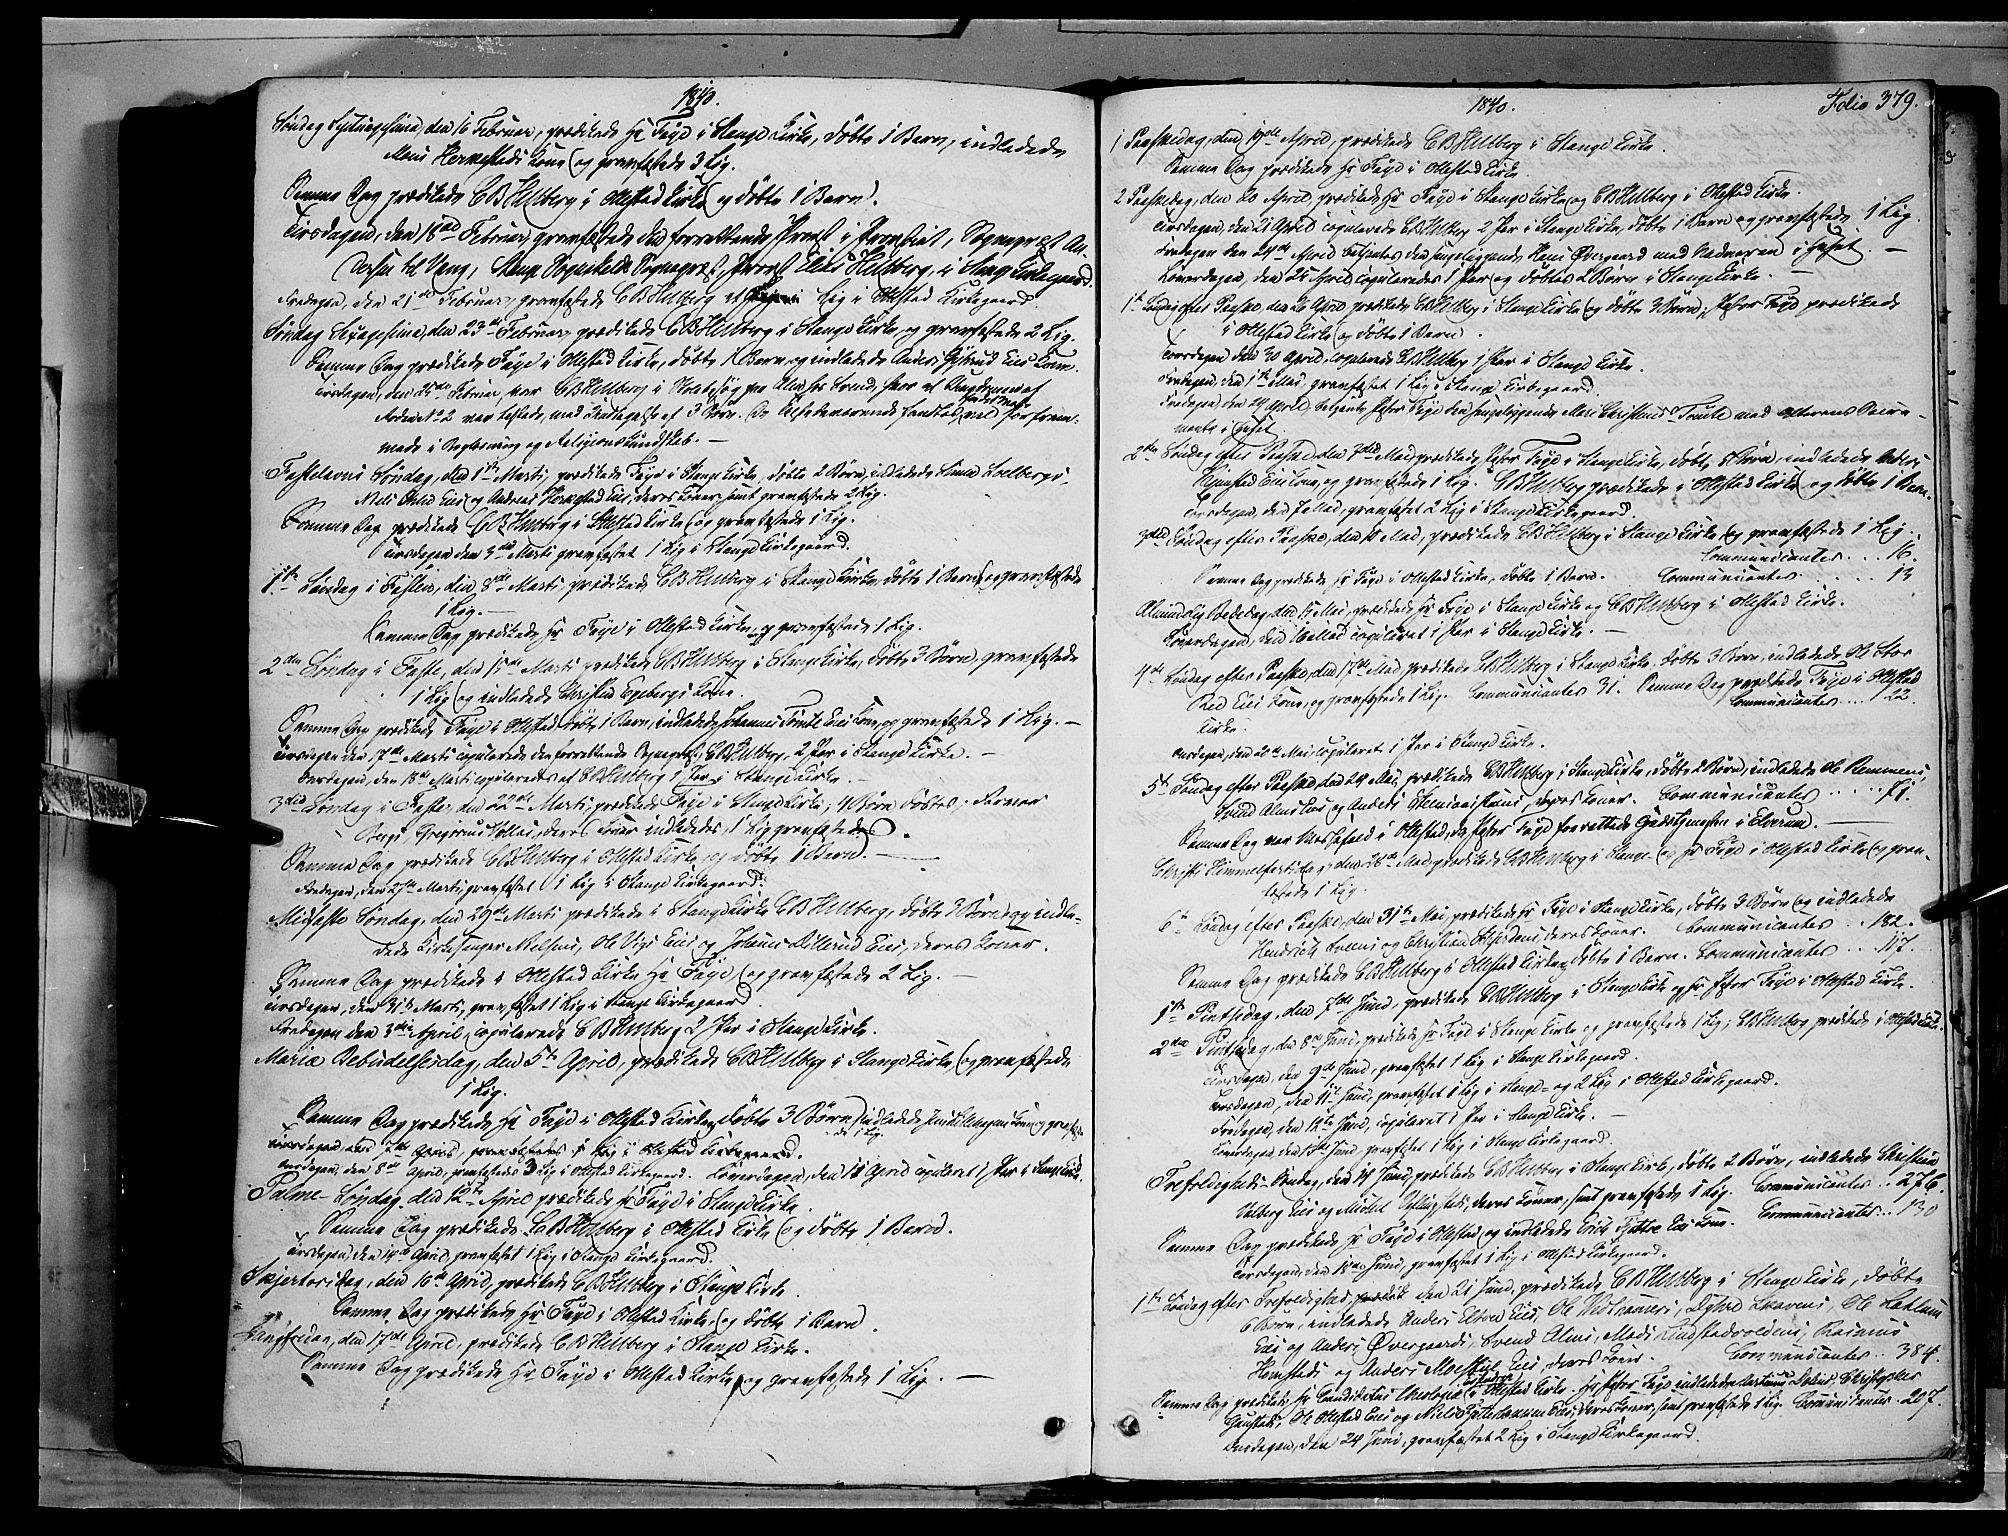 1840.
Søndag Septuagesima, den 16 Februar, prædikede Hr Faye i Stange Kirke, døbte 1 Barn, indledede
Kone og gravfæstede 3 Lig.
Samme Dag prædikede CB Hellberg i Ottestad Kirke og døbte 1 Barn.
Tirsdagen, den 18de Februar, gravfæstede den forrettende Provst i Provstiet, Sognepræst An-
dersen til Vang, Stange Sognekalds Sognepræst, Provst Elias Hellberg, i Stange Kirkegaard.
Fredagen, den 21de Februar, gravfæstede CB Hellberg et Lig i Ottestad Kirkegaard
Søndag Sexagesima, den 23de Februar, prædikede CB Hellberg i Stange Kirke og gravfæstede 2 Lig.
Samme Dag prædikede Faye i Ottestad Kirke, døbte 1 Barn og indledede Anders Eies Kone.
Tirsdagen, den 25de Februar, var CB Hellberg i
No 2 var med af 3 Børn. De
made i Boglæsning og Religionskundskab. —
Fastelavns Søndag, den 1ste Marti, prædikede Faye i Stange Kirke, døbte 2 Børn, indledede
Niels Eies og Andreas Eies, deres Koner, samt gravfæstede 2 Lig.
Samme Dag prædikede CB Hellberg i Ottestad Kirke og gravfæstede 1 Lig.
Tirsdagen den 3die Marti gravfæstet 1 Lig i Stange Kirkegaard.
1ste Søndag i Fasten, den 8de Marti, prædikede CB Hellberg i Stange Kirke, døbte 1 Barn og gravfæstede
1 Lig. —
Samme Dag prædikede Hr Faye i Ottestad Kirke og gravfæstede 1 Lig.
2den Søndag i Faste, den 15de Marti prædikede CB Hellberg i Stange Kirke, døbte 3 Børn, gravfæstede
1 Lig og indledede Christian Kone.
Samme Dag prædikede Faye i Ottestad døbte 1 Barn, indledede Johannes Eies Kone, og gravfæstede 1 Lig. —
Tirsdagen den 17de Marti copulerede den forrettende Sognepræst, CB Hellberg, 2 Par i Stange Kirke. —
Onsdagen, den 18de Marti copuleredes af CB Hellberg 1 Par i Stange Kirke. —
3die Søndag i Faste, den 22de Marti, prædikede Faye i Stange Kirke; 4 Børn døbtes;
deres Koner indlededes, 1 Lig gravfæstedes.
Samme Dag prædikede CB Hellberg i Ottestad Kirke og døbte 1 Barn. —
Fredagen, den 27de Marti gravfæstet 1 Lig i Stange Kirkegaard.
Midfaste Søndag, den 29de Marti prædikede i Stange Kirke CB Hellberg, døbte 3 Børn og indle-
dede Kirkesanger Nielsens, Ole Eies og Johannes Eies, deres Koner.
Samme Dag prædikede i Ottestad Kirke Hr Faye og gravfæstede 2 Lig. —
Tirsdagen, den 31te Marti, gravfæstet 1 Lig i Stange Kirkegaard.
Fredagen den 3die April copulerede CB Hellberg 2 Par i Stange Kirke.
Mariæ Bebudelsesdag, den 5te April, prædikede CB Hellberg i Stange Kirke og gravfæstede
1 Lig.
Samme Dag prædikede Hr Faye i Ottestad Kirke, døbte 3 Børn, indledede Kone og gravfæste-
de 1 Lig.
Tirsdagen, den 7de April, gravfæstedes 1 Lig i Ottestad Kirkegaard.
Onsdagen, den 8de April, gravfæstedes 3 Lig i Ottestad Kirkegaard. Løverdagen, den 11 April copuleret 1 Par i Stange Kirke.
Palme-Søndag, den 12te April prædikede Hr Faye i Stange Kirke.
Samme Dag prædikede CB Hellberg i Ottestad Kirke og døbte 1 Barn.
Tirsdagen, den 14de April, gravfæstet 1 Lig i Stange Kirkegaard.
Skjertorsdag, den 16de April, prædikede CB Hellberg i Stange Kirke
Samme Dag prædikede Hr Faye i Ottestad Kirke og døbte 1 Barn.
Langfredag, den 17de April, prædikede CB Hellberg i Stange Kirke.
Samme Dag prædikede Hr Faye i Ottestad Kirke og gravfæstede 1 Lig. —
1840.
Folio 379.
1 Paaskedag, den 19de April, prædikede CB Hellberg i Stange Kirke.
Samme Dag prædikede Hr Faye i Ottestad Kirke.
2 Paaskedag, den 20 April, prædikede Hr Faye i Stange Kirke, og CB Hellberg i Ottestad Kirke.
Tirsdagen, den 21 April copulerede CB Hellberg 2 Par i Stange Kirke, døbte 1 Barn og gravfæstede 1 Lig.
Fredagen den 24de April betjentes den sengeliggende Hans Øvergaard med Nadveren i Huset. —
Løverdagen, den 25 April, copuleredes 1 Par og døbtes 2 Børn i Stange Kirke. —
1ste Søndag efter Paaske, den 26 April prædikede CB Hellberg i Stange Kirke og døbte 3 Børn, Pastor Faye prædikede
i Ottestad Kirke og døbte 1 Barn.
Torsdagen den 30 April, copulerede CB Hellberg 1 Par i Stange Kirke.
Fredagen, den 1ste Mai, gravfæstet 1 Lig i Stange Kirkegaard.
Fredagen, den 24 April, betjente Pastor Faye den sengeliggende med Alterens Sacra-
mente i Huset.
2den Søndag efter Paaske, den 3die Mai prædikede Pastor Faye i Stange Kirke, døbte Børn, indledede Anders
Eies Kone, og gravfæstede 1 Lig. CB Hellberg prædikede i Ottestad Kirke og døbte 1 Barn.
Torsdagen, den 7 Mai, gravfæstet 2 Lig i Stange Kirkegaard.
3die Søndag efter Paaske, den 10 Mai, prædikede CB Hellberg i Stange Kirke og gravfæstede 1 Lig.
Communicantes . . . 16.
Samme Dag prædikede Hr Faye i Ottestad Kirke, døbte 1 Barn. Communicantes . . . . . 13
Almindelig Bededag, den 15 Mai, prædikede Hr Faye i Stange Kirke og CB Hellberg i Ottestad Kirke.
Løverdagen, den 16 Mai copuleret 1 Par i Stange Kirke. —
4de Søndag efter Paaske, den 17de Mai prædikede CB Hellberg i Stange Kirke, døbte 3 Børn, indledede Ole Stor
Eies Kone, og gravfæstede 1 Lig. Communicantes 31. Samme Dag prædikede Faye i Ottestad
Communicantes . . . . 22.
Kirke.
Onsdagen, den 20de Mai copuleret 1 Par i Stange Kirke.
5te Søndag efter Paaske den 24 Mai, prædikede CB Hellberg i Stange Kirke, døbte 2 Børn, indledede Ole
Svend og Anders deres Koner. Communicantes . . . . 71.
Samme Dag var Messefald i Ottestad, da Pastor Faye forrettede Gudstjenesten i Elverum. —
Christi Himmelfartsdag, den 28de Mai prædikede CB Hellberg i Stange og Hr Faye i Ottestad Kirke og grav-
fæstede 1 Lig.
6te Søndag efter Paaske, den 31te Mai, prædikede Hr Faye i Stange Kirke, døbte 3 Børn og indledede
Hendrich og Christian deres Koner. Communicantes . . 182.
Samme Dag prædikede CB Hellberg i Ottestad Kirke, døbte 1 Barn. Communicantes . . . 117.
1ste Pintsedag, den 7de Juni, prædikede CB Hellberg i Stange Kirke og Hr Pastor Faye i Ottestad Kirke.
2den Pintsedag, den 8de Juni, prædikede Hr Faye i Stange Kirke og gravfæstede 1 Lig; CB Hellberg prædikede i Ottestad Kirke.
Tirsdagen, den 9de Juni, gravfæstet 1 Lig i Stange Kirkegaard.
Torsdagen, den 11te Juni, gravfæstet 1 Lig i Stange- og 2 Lig i Ottestad Kirkegaard.
Fredagen, den 12te Juni, copuleret 1 Par i Stange Kirke. —
Løverdagen, den 13de Juni gravfæstet 1 Lig i Stange Kirkegaard.
Trefoldigheds-Søndag, den 14 Juni, prædikede CB Hellberg i Stange Kirke, døbte 2 Børn, indledede Christian
Eies og Mikkel deres Koner, samt gravfæstede 1 Lig. Communicantes . . 276.
Samme Dag prædikede Hr Faye i Ottestad og indledede Eies Kone. Communicantes . . 130
Torsdagen, den 18de Juni, gravfæstet 1 Lig i Ottestad Kirkegaard.
1ste Søndag efter Trefoldighed den 21 Juni, prædikede CB Hellberg i Stange Kirke, døbte
6 Børn, indledede Anders Eies, Ole
Eies og Anders Øvergaards, Svend Mads Rasmus
og Anders Eies, deres Koner. Communicantes . . 384.
Samme Dag prædikede Hr Candidatus Theologiæ i Ottestad Kirke. Hr Pastor Faye indledede Christopher
Ole Ottestad Eies og Niels Eies, deres Koner, samt gravfæstede 1 Lig. Communicantes . 207.
Onsdagen, den 24 Juni, gravfæstet 2 Lig i Stange Kirkegaard.